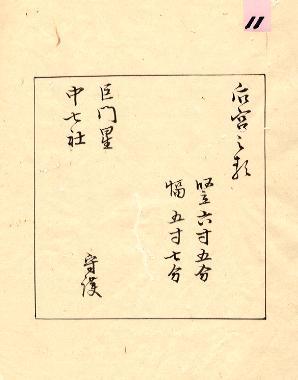 11
后宮之類
竪六寸五分
幅五寸七分
巨門星
中七社
守護